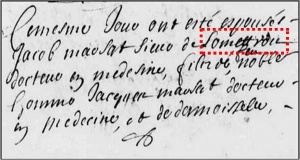 Cemesme Jour ont esté espousé
Jacob mausat Sieur de
docteur en medesine, filz de noble
homme Jacques mausat docteur
en medecine, et de damoiselle,